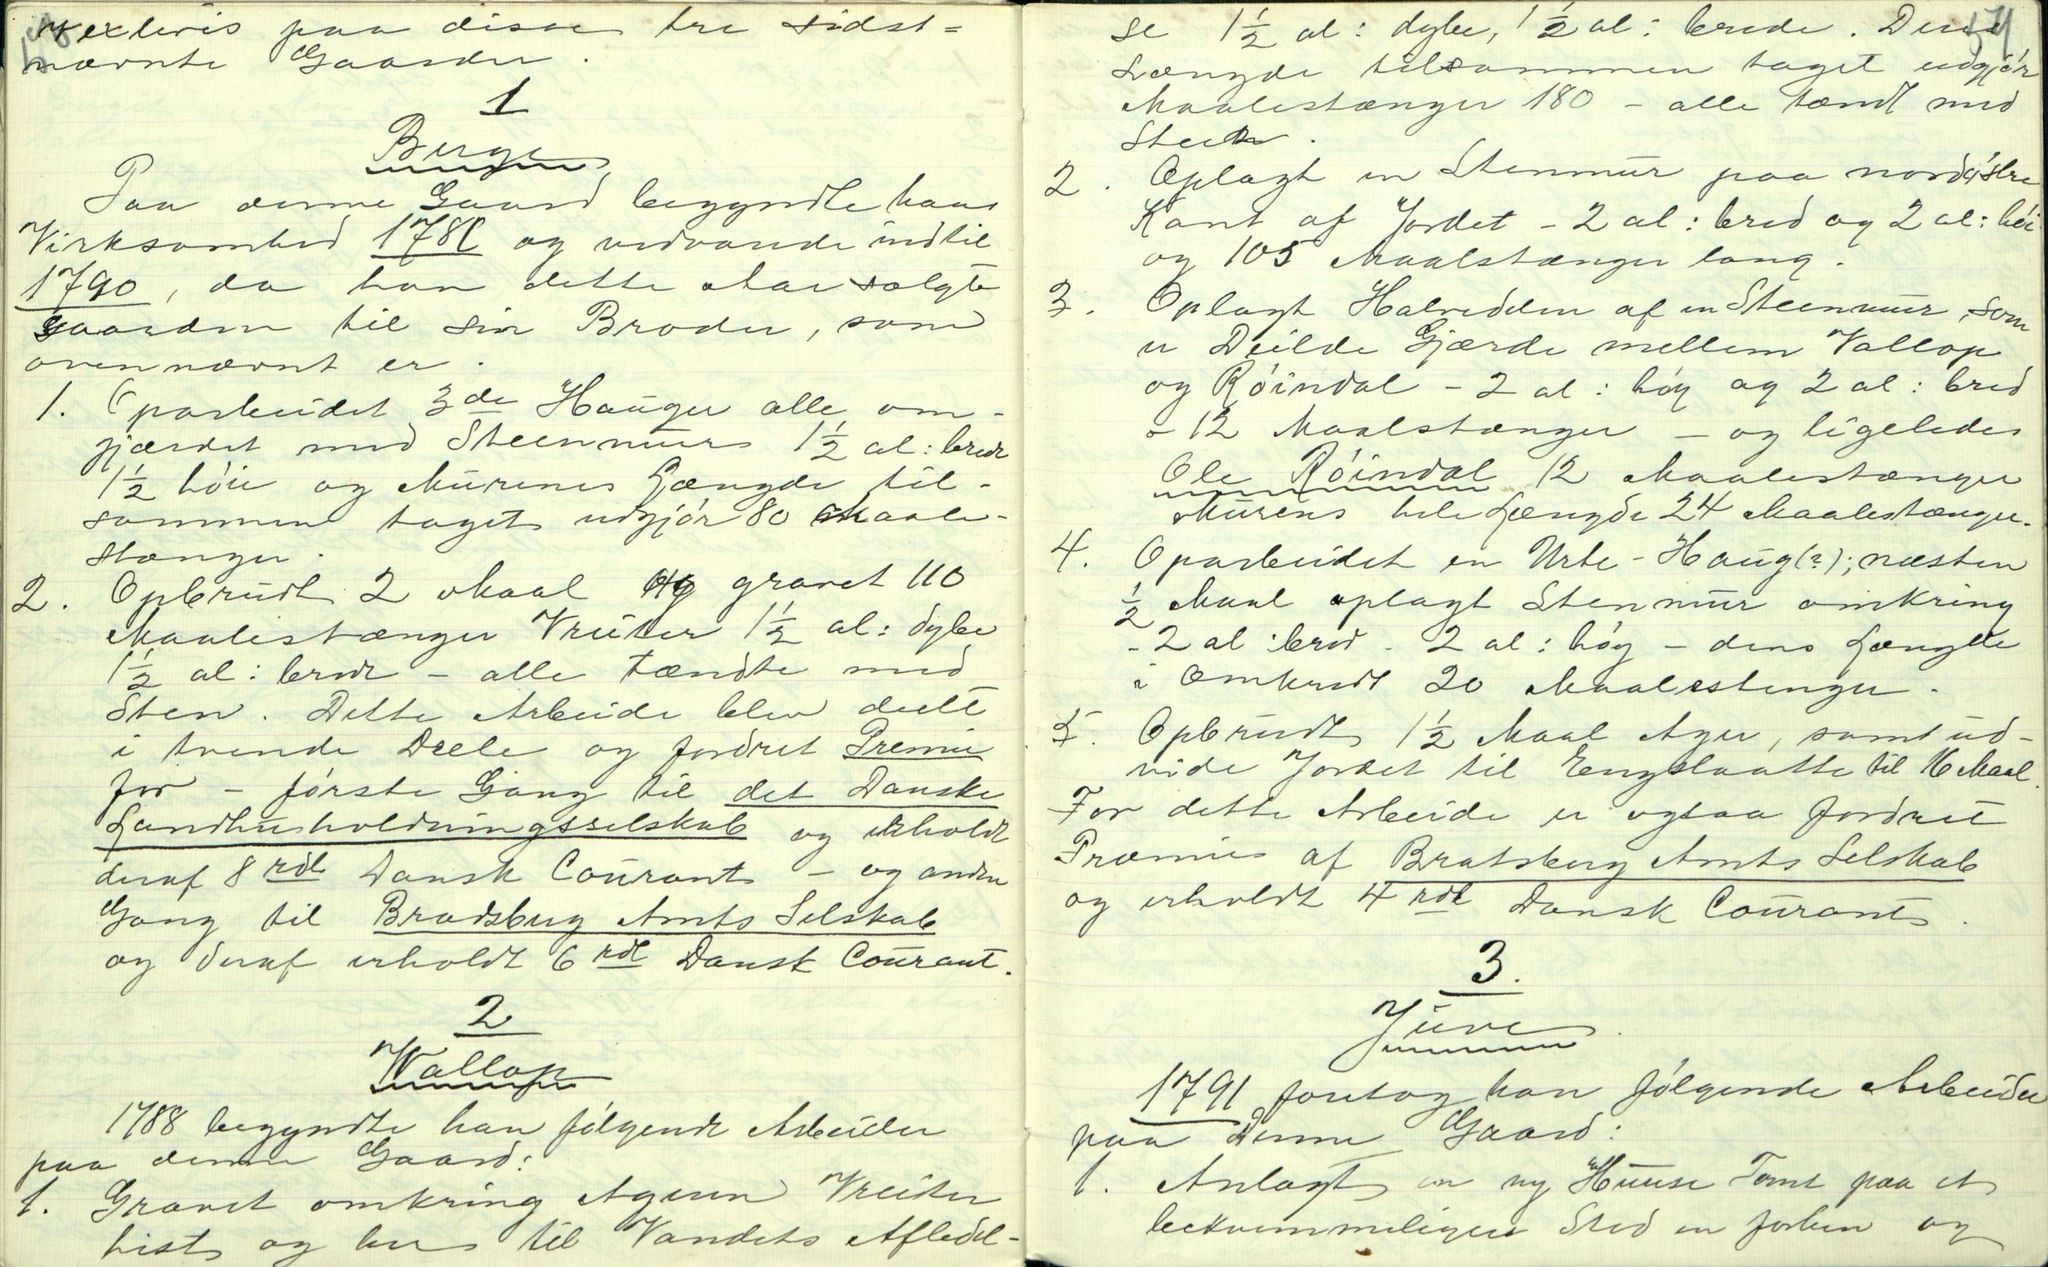 vexlevis paa disse tre sidst=
nævnte Gaarder.
1
Berge
Paa denne Gaard begyndte hans
Virksomhed 1781 og vedvarede indtil
1790, da han dette Aar solgte
Gaarden til sin Broder, som
ovennævnt er.
1. Oparbeidet 3de Hauger alle om-
gjærdet med Steenmurs 1½ al: brede
1½ høie og Murenes Længde til-
sammen taget udgjør 80 Maale-
stænger.
2. Opbrudt 2 Maal og gravet 110
Maalestænger Vreiter 1½ al: dybe
1½ al: brede - alle tændte med
Sten. Dette Arbeide blev deelt
i tvende Deele og fordret Premie
for - første Gang til det Danske
Landhusholdningsselskab og erholdt
deraf 8 rdl Dansk Courant - og anden
Gang til Bradsberg Amts Selskab
og deraf erholdt 6 rdl Dansk Courant.
2
Wallop
1788 begyndte han følgende Arbeider
paa denne Gaard:
1. Gravet omkring Ageren Vreiter
hist og her til Vandets Afledel-
54
se 1½ al: dybe, 1½ al: brede. Deres
Længde tilsammen taget udgjør
Maalestænger 180 - alle tændt med
Steen.
2. Oplagt en Stenmur paa nordøstre
Kant af Jordet - 2 al: bred og 2 al: høi
og 105 Maalstænger lang.
3. Oplagt Halvedelen af en Steenmur, som
er Deilde Gjærde mellem Vallop
og Røindal - 2 al: høy og 2 al: bred
- 12 Maalstænger - og ligeledes
Ole Røindal 12 Maalestænger
Murens hele Længde 24 Maalestænger.
4. Oparbeidet en Urte-Haug(?); næsten
½ Maal oplagt Stenmur omkring
- 2 al: bred - 2 al: høy - dens Længde
i Omkreds 20 Maalestenger.
5. Opbrudt 1½ Maal Ager, samt ud-
vide Jordet til Engslaatte til 16 Maal.
For dette Arbeide er ogsaa fordret
Præmie af Bratsberg Amts Selskab
og erholdt 4 rdl Dansk Courant.
3.
Juve
1791 foretog han følgende Arbeider
paa Denne Gaard:
1. Anlagt en ny Huuse Tomt paa et
bekvemmeligere Sted en forhen og